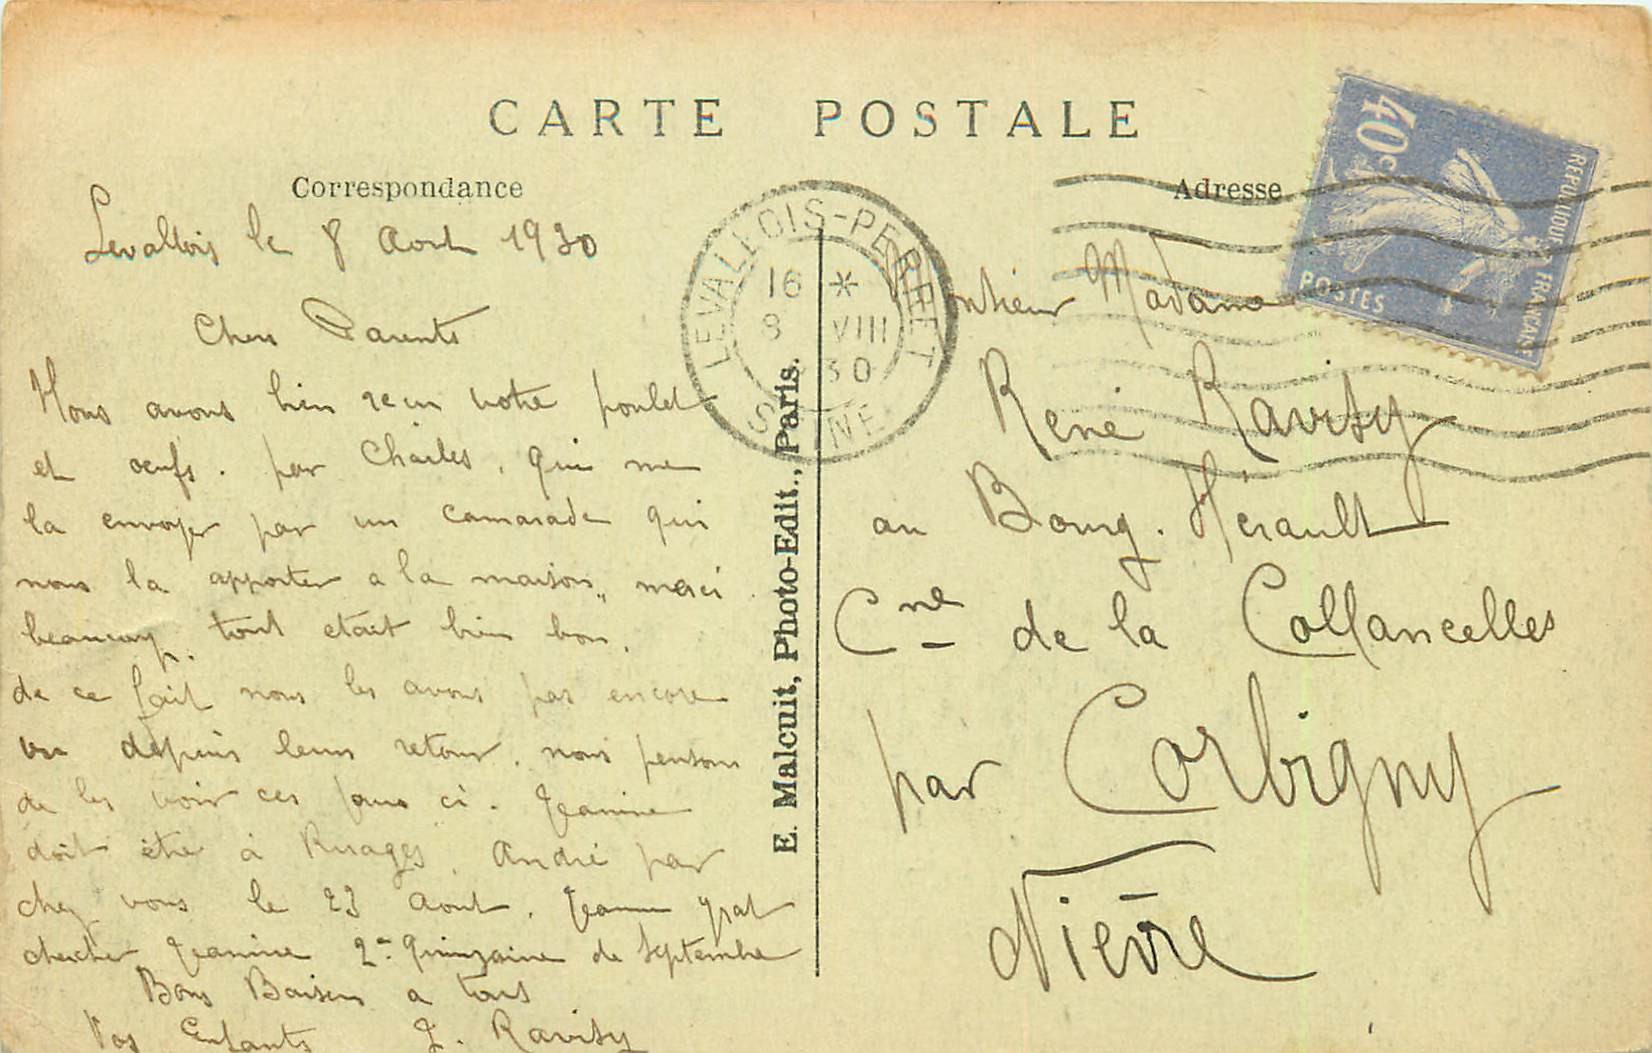 CARTE POSTALE
Correspondance
Levallois le 8 Aout 1930
Chers Parents
Nous avons bien recu votre poulet
et oeufs. par Charles, qui me
la envoyer par un camarade qui
nous la apporter a la maison,, merci
beaucoup. tout etait bien bon.
de ce fait nous les avons pas encore
vu depuis leur retour. nous pensons
de les voir ces jours ci. Jeanine
doit être à Ruages, André par
chez vous le 23 Aout. Jeanne yrat
chercher Jeanine 2e Quinzaine de Septembre
Bons Baisers a tous
Vos Enfants J. Ravisy
E. Malcuit, Photo-Edit., Paris.
LEVALLOIS-PERRET
16 *
8 VIII
30
SEINE
Adresse
40c
REPUBLIQUE FRANCAISE
POSTES
Monsieur Madame
René Ravisy
au Bourg. Hérault
Cne de la Collancelles
par Corbigny
Nièvre